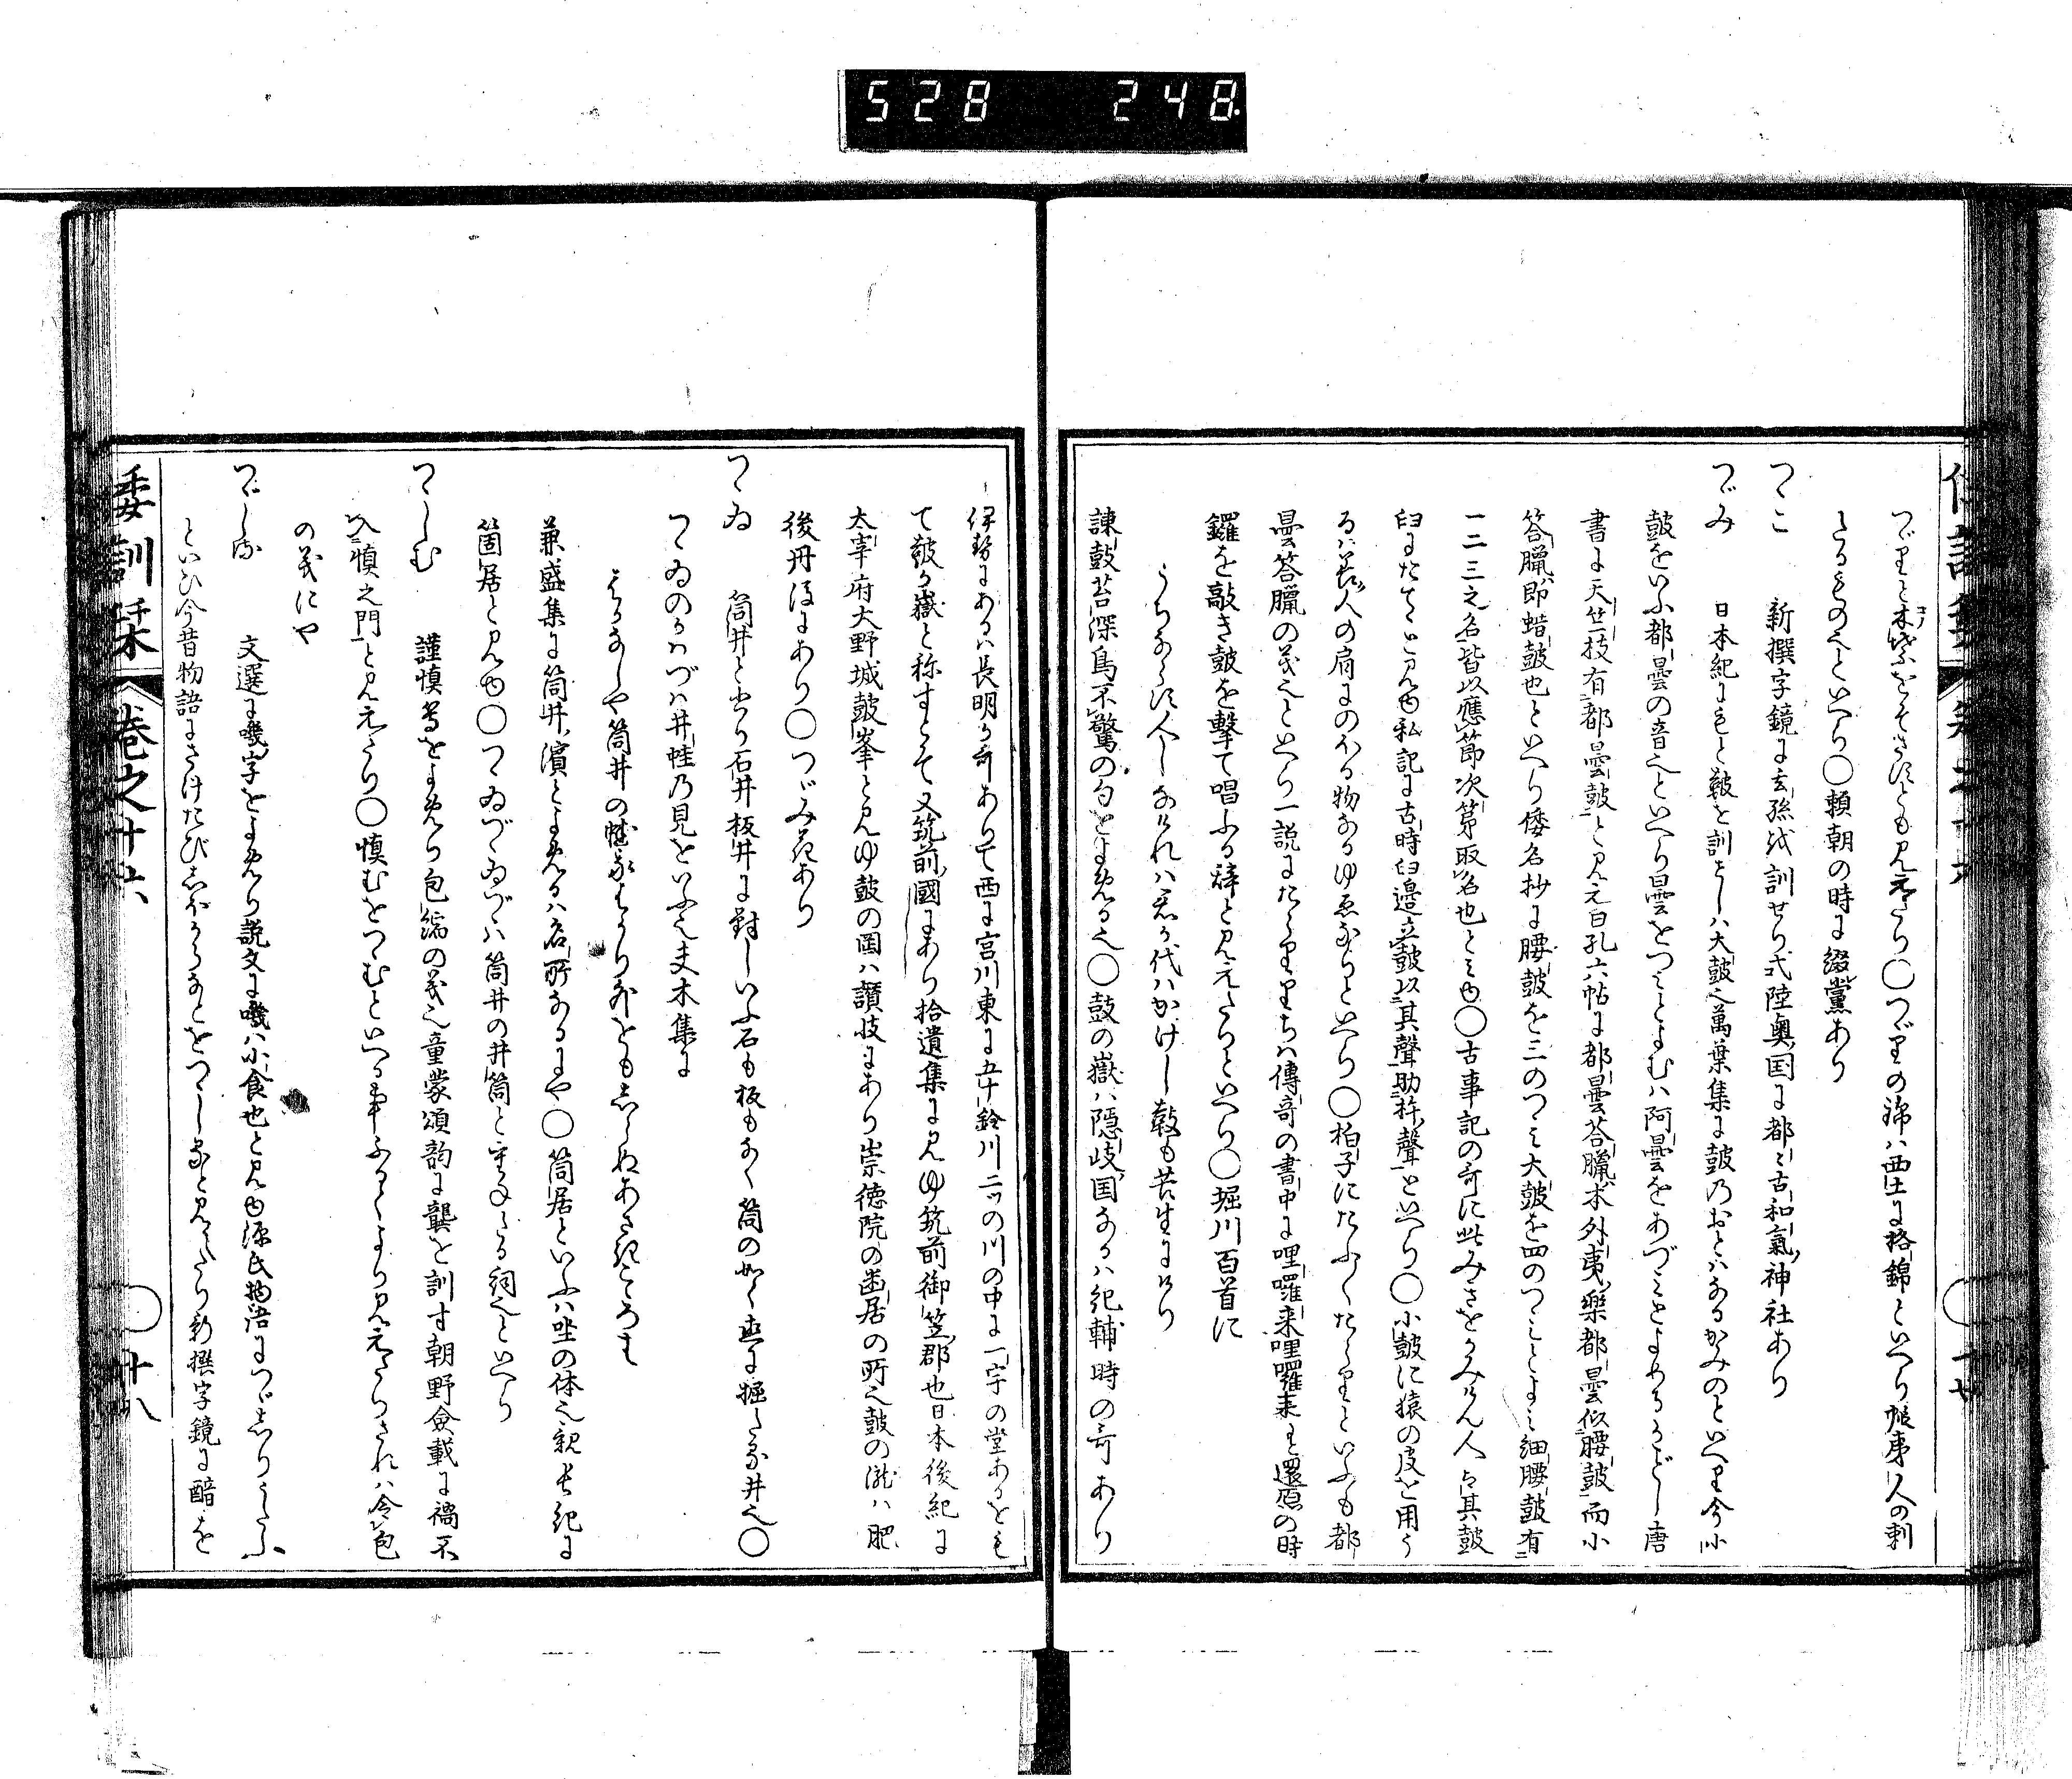 528 248
つゞりと木緜をそさにも見えたり○つゞりの錦ハ西土に袼錦といへり 夷人の刺
たるものへといへり○頼朝の時に綴黨あり
つこ 新撰字鏡に玄孫を訓せり式陸奥国に都々古和氣神社あり
つゞみ 日本紀に鼓と鞁と訓としハ大鼓也萬葉集に鼓乃おとハなるかみのといへり今小
鼓をいふ都曇の音也といへり曇をつミとよむハ阿曇をあづミとよめるがごとし唐
書に天竺枝有都曇鼓と見え白孔六帖に都曇荅臘本外夷樂都曇似腰鼓而小
答臘即蜡鼓也といへり倭名抄に腰鼓を三のつゝミ大鼓を四のつゝミとよミ細腰鼓有
一二三之名皆以應節次第取名也とミゆ○古事記の哥に此みきをかみけん人ハ其鼓
臼にたてゝと見ゆ私記に古時臼邉立鼓以其聲助杵聲といへり○小鼓に猿の皮を用う
るハ長人の肩にのぼる物なるゆゑなりといへり○拍子にたふ〱たらりといふも都
曇答臘の義也といへり一説にたらりちハ傳奇の書中に哩囉来哩囉来と還源の時
鑼を敲き鼓を撃て唱ふる辞と見えたりといへり○堀川百首に
うちならす人しなけれハ君か代ハかけし鼓も苔生にけり
諌鼓苔深鳥不驚の句をよめる也○鼓の嶽ハ隱岐国なるハ紀輔時の哥あり
伊勢にあるハ長明か哥ありて西に宮川東に五十鈴川二ッの川の中に一宇の堂あるをも
て鼓か嶽と称すとそ又筑前國にあり拾遺集に見ゆ筑前御笠郡也日本後紀に
太宰府大野城鼓峯と見ゆ鼓の岡ハ讃岐にあり崇徳院の御居の所也鼓の瀧ハ肥
後丹後にあり○つゞみ花あり
つゝゐ 筒井と書り石井板井に對しいふ石も板もなく筒の如く直に掘たる井也○
つゝゐのかハづハ井蛙乃見をいふ也夫木集に
はかなしや筒井の蛙我はかり外をも志らぬあさきこゝろは
兼盛集に筒井濱とよめるハ名所なるにや○筒居といふハ坐の体也親長紀に
箇居と見ゆ○つゝゐづゝゐづゝハ筒井の井筒と重ねたる詞也といへり
つゝしむ 謹慎等をよめり包縮の義也童蒙頌韵に龔を訓す朝野僉載に禍不
入慎之門と見えたり○慎むをつゝむといへる事ふるくより見えたりされハ令包
の義にや
つゞしる 文選に嘰字をよめり説文に嘰ハ小食也と見ゆ源氏物語につゞしりうたふ
といひ今昔物語にさけたひ志ほからなとをつゝしると見えたり新撰字鏡に醋を
倭訓栞 巻之十六 十八